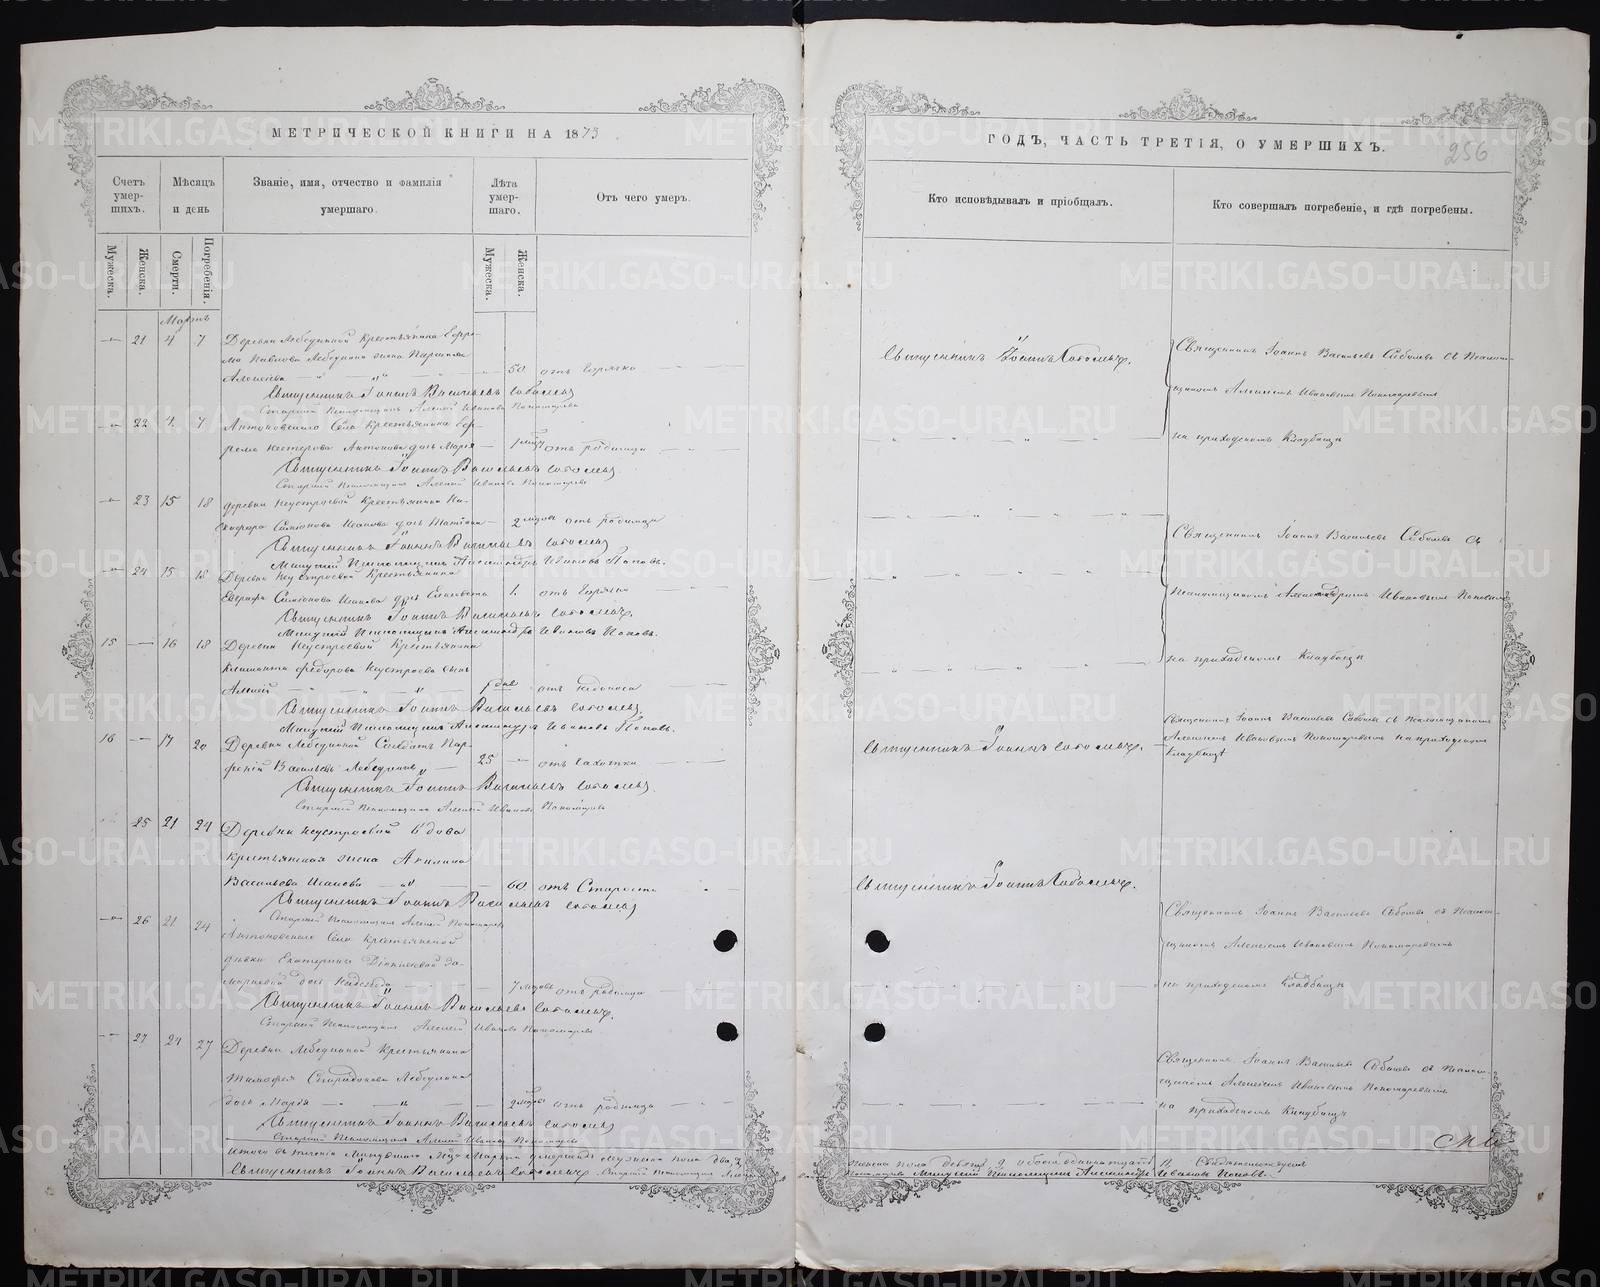 МЕТРИЧЕСКОЙ КНИГИ НА 1873
Счетъ умер-шихъ.
Мѣсяцъ и день
Званіе, имя, отчество и фамилія умершаго.
Лѣта умер-шаго.
Отъ чего умеръ.
Мужеска. Женска. Смерти. Погребенія. Мужеска. Женска.
Мартъ
21 4 7 Деревни Лебедкиной Крестьянина Ефре-
ма Павлова жена
Алексѣева 50 отъ горячки
Священникъ Іоаннъ Васильевъ Соболевъ
Старшій Псаломщикъ Алексѣй Ивановъ Пономаревъ
22 4 7 Антоновскаго Села Крестьянина Еф-
рема Нестерова Антонова дочь Марія 1 отъ родимца
Священникъ Іоаннъ Васильевъ Соболевъ
Старшій Псаломщикъ Алексѣй Ивановъ Пономаревъ
23 15 18 деревни Неустроевой Крестьянина Ни-
кифора Симіонова Исакова дочь Татіана 2 мѣсяц. отъ родимца
Священникъ Іоаннъ Васильевъ Соболевъ
Младшій Псаломщикъ Александръ Ивановъ Поповъ.
24 15 18 Деревни Неустроевой Крестьянина
Евграфа Симіонова Исакова дочь 1. отъ горячки
Священникъ Іоаннъ Васильевъ Соболевъ.
Младшій Псаломщикъ Александръ Ивановъ Поповъ.
15 16 18 Деревни Неустроевой Крестьянина
Климента Федорова Неустроева сынъ
Алексѣй отъ
Священникъ Іоаннъ Васильевъ Соболевъ
Младшій Псаломщикъ Александръ Ивановъ Поповъ.
16 17 20 Деревни Лебедкиной Солдатъ Пар-
феній Васильевъ Лебедкинъ 25 отъ чахотки
Священникъ Іоаннъ Васильевъ Соболевъ.
Старшій Псаломщикъ Алексѣй Ивановъ Пономаревъ
25 21 24 Деревни Неустроевой вдова
Крестьянская жена Акилина
Васильева Исакова 60 отъ Старости
Священникъ Іоаннъ Васильевъ Соболевъ
Старшій Псаломщикъ Алексѣй Пономаревъ
26 21 24 Антоновскаго Села Крестьянской
дѣвки Екатерины
дочь Надежда 7 мѣсяц. отъ родимца
Священникъ Іоаннъ Васильевъ Соболевъ.
Старшій Псаломщикъ Алексѣй Ивановъ Пономаревъ
27 24 27 Деревни Лебедкиной Крестьянина
Тимофея Спиридонова Лебедкина
дочь Марія 2 мѣсяц. отъ родимца
Священникъ Іоаннъ Васильевъ Соболевъ
Старшій Псаломщикъ Алексѣй Ивановъ Пономаревъ
Итого въ теченіи Мѣсяца Марта умершихъ мужеска пола два, 2,
Священникъ Іоаннъ Васильевъ Соболевъ. Старшій Псаломщикъ
ГОДЪ, ЧАСТЬ ТРЕТІЯ, О УМЕРШИХЪ.
256
Кто исповѣдывалъ и пріобщалъ.
Кто совершалъ погребеніе, и гдѣ погребены.
Священникъ Іоаннъ Соболевъ.
Священникъ Іоаннъ Васильевъ Соболевъ съ Псалом-
щикомъ Алексѣемъ Ивановымъ Пономаревымъ
на приходскомъ Кладбищѣ
Священникъ Іоаннъ Васильевъ Соболевъ съ
Псаломщикомъ Александромъ Ивановымъ Поповымъ
на приходскомъ Кладбищѣ
Священникъ Іоаннъ Соболевъ.
Священникъ Іоаннъ Васильевъ Соболевъ съ Псаломщикомъ
Алексѣемъ Ивановымъ Пономаревымъ на приходскомъ
Кладбищѣ
Священникъ Іоаннъ Соболевъ.
Священникъ Іоаннъ Васильевъ Соболевъ съ Псалом-
щикомъ Алексѣемъ Ивановымъ Пономаревымъ
на приходскомъ Кладбищѣ
Священникъ Іоаннъ Васильевъ Соболевъ съ Псалом-
щикомъ Алексѣемъ Ивановымъ Пономаревымъ
на приходскомъ Кладбищѣ
женска пола девять, 9 обоего одинадцать 11
Младшій Псаломщикъ Александръ Ивановъ Поповъ.
METRIKI.GASO-URAL.RU